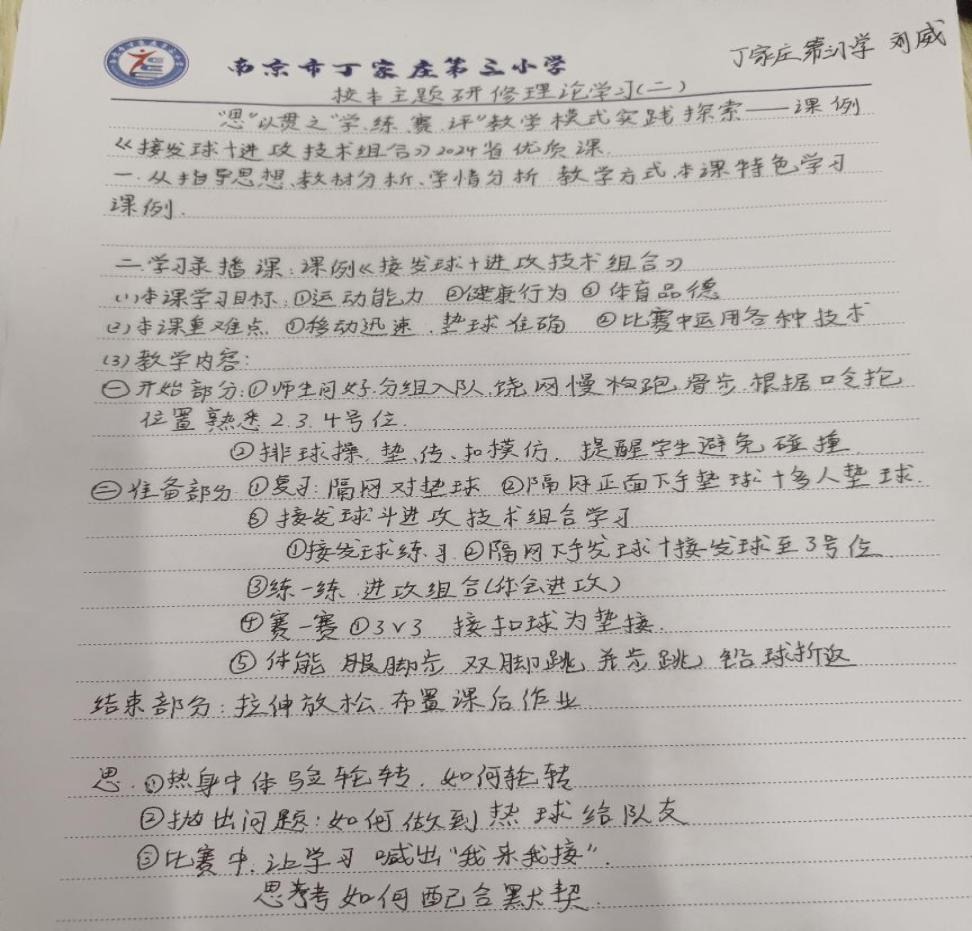 丁家庄第三小学 刘威
南京市丁家庄第三小学
校本主题研修理论学习(二)
"思"以贯之"学、练、赛、评"教学模式实践探索——课例
《接发球+进攻技术组合》2024省优质课.
一.从指导思想、教材分析、学情分析 教学方式.本课特色学习
课例.
二.学习录播课:课例《接发球+进攻技术组合》
(1)本课学习目标:①运动能力 ②健康行为 ③体育品德
(2)本课重难点.①移动迅速.垫球准确 ②比赛中运用各种技术
(3)教学内容:
㊀开始部分:①师生问好.分组入队.绕网慢 跑.滑步.根据口令抢
位置熟悉2.3.4号位.
②排球操.垫、传、扣模仿.提醒学生避免碰撞.
㊁准备部分①复习:隔网对垫球 ②隔网正面下手垫球+多人垫球.
③接发球+进攻技术组合学习
①接发球练习.②隔网下手发球+接发球至3号位
③练一练.进攻组合(体会进攻)
④赛一赛①3v3 接扣球为垫接.
⑤体能 脚步 双脚跳 并步跳) 铅球折返
结束部分:拉伸放松.布置课后作业
思.①热身中体验轮转.如何轮转
②抛出问题:如何做到热球给队友
③比赛中.让学习喊出"我来我接".
思考如何配合默契.